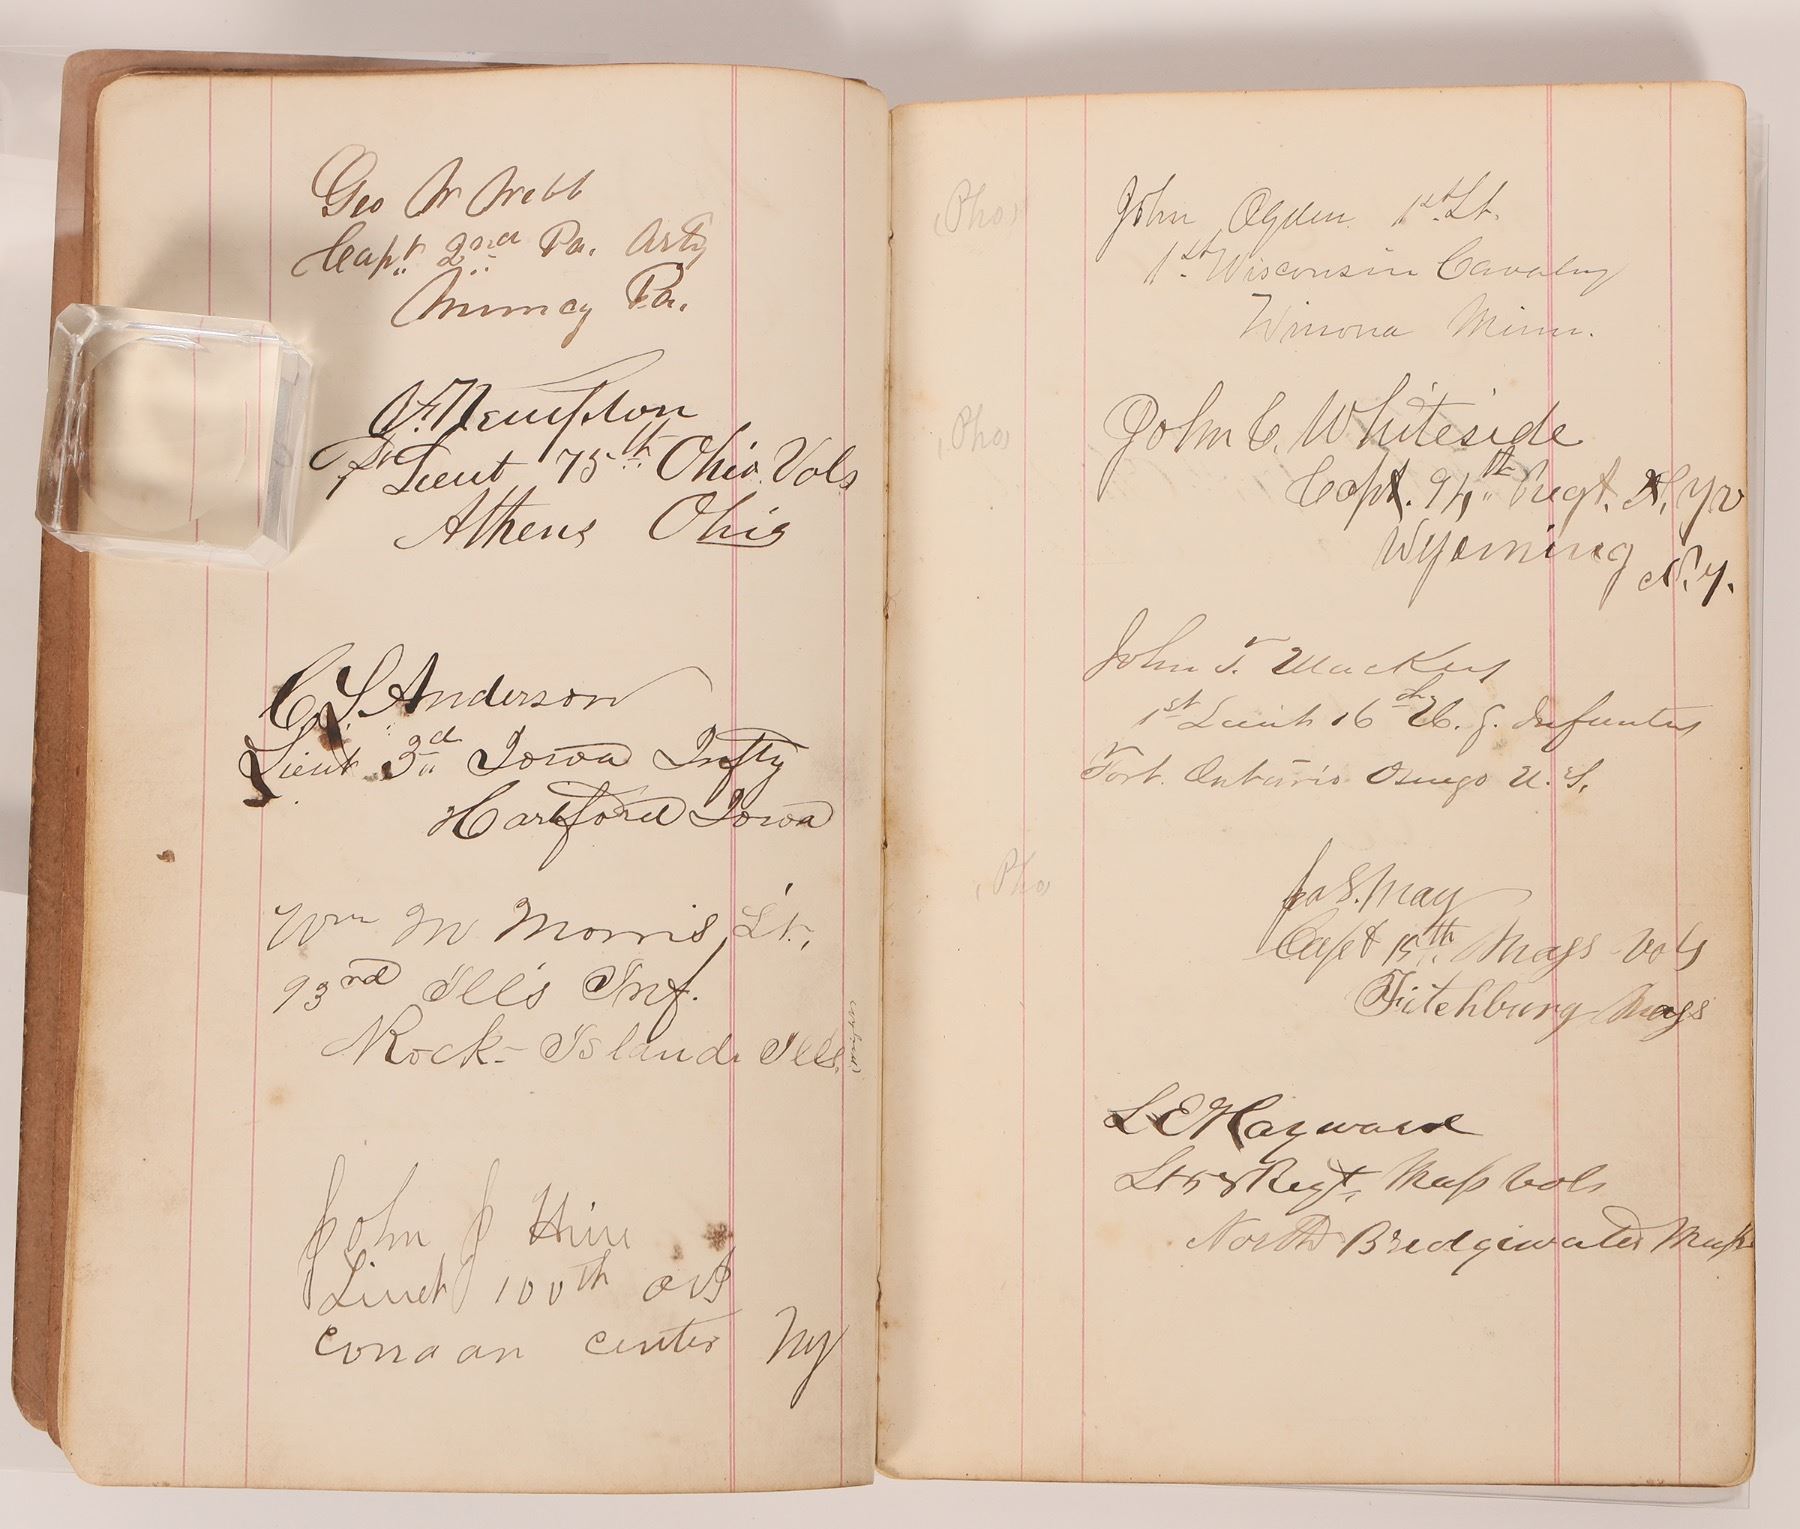 Geo W Webb
Capt 2nd Pa. Arty
Muncy Pa.
A. Kempton
1st Lieut 75th Ohio Vols
Athens Ohio
C S Anderson
Lieut 3d Iowa Infty
Hartford Iowa
Wm M Morris, Lt.
93rd Ills Inf.
Rock-Island Ills.
John J Hine
Lieut 100th
conaan center Ny
(Pho)
John Ogden 1st Lt.
1st Wisconsin Cavalry
Winona Minn.
(Pho)
John C. Whiteside
Capt. 94th Regt. N.Y V
Wyoming N.Y.
John T. Mackey
1st Lieut 16th U. S. Infantry
Fort Ontario Oswego U. S.
(Pho)
Jos. S. May
Capt 15th Mass Vols
Fitchburg Mass
L E Hayward
Lt Regt, Mass Vols
North Bridgewater Mass